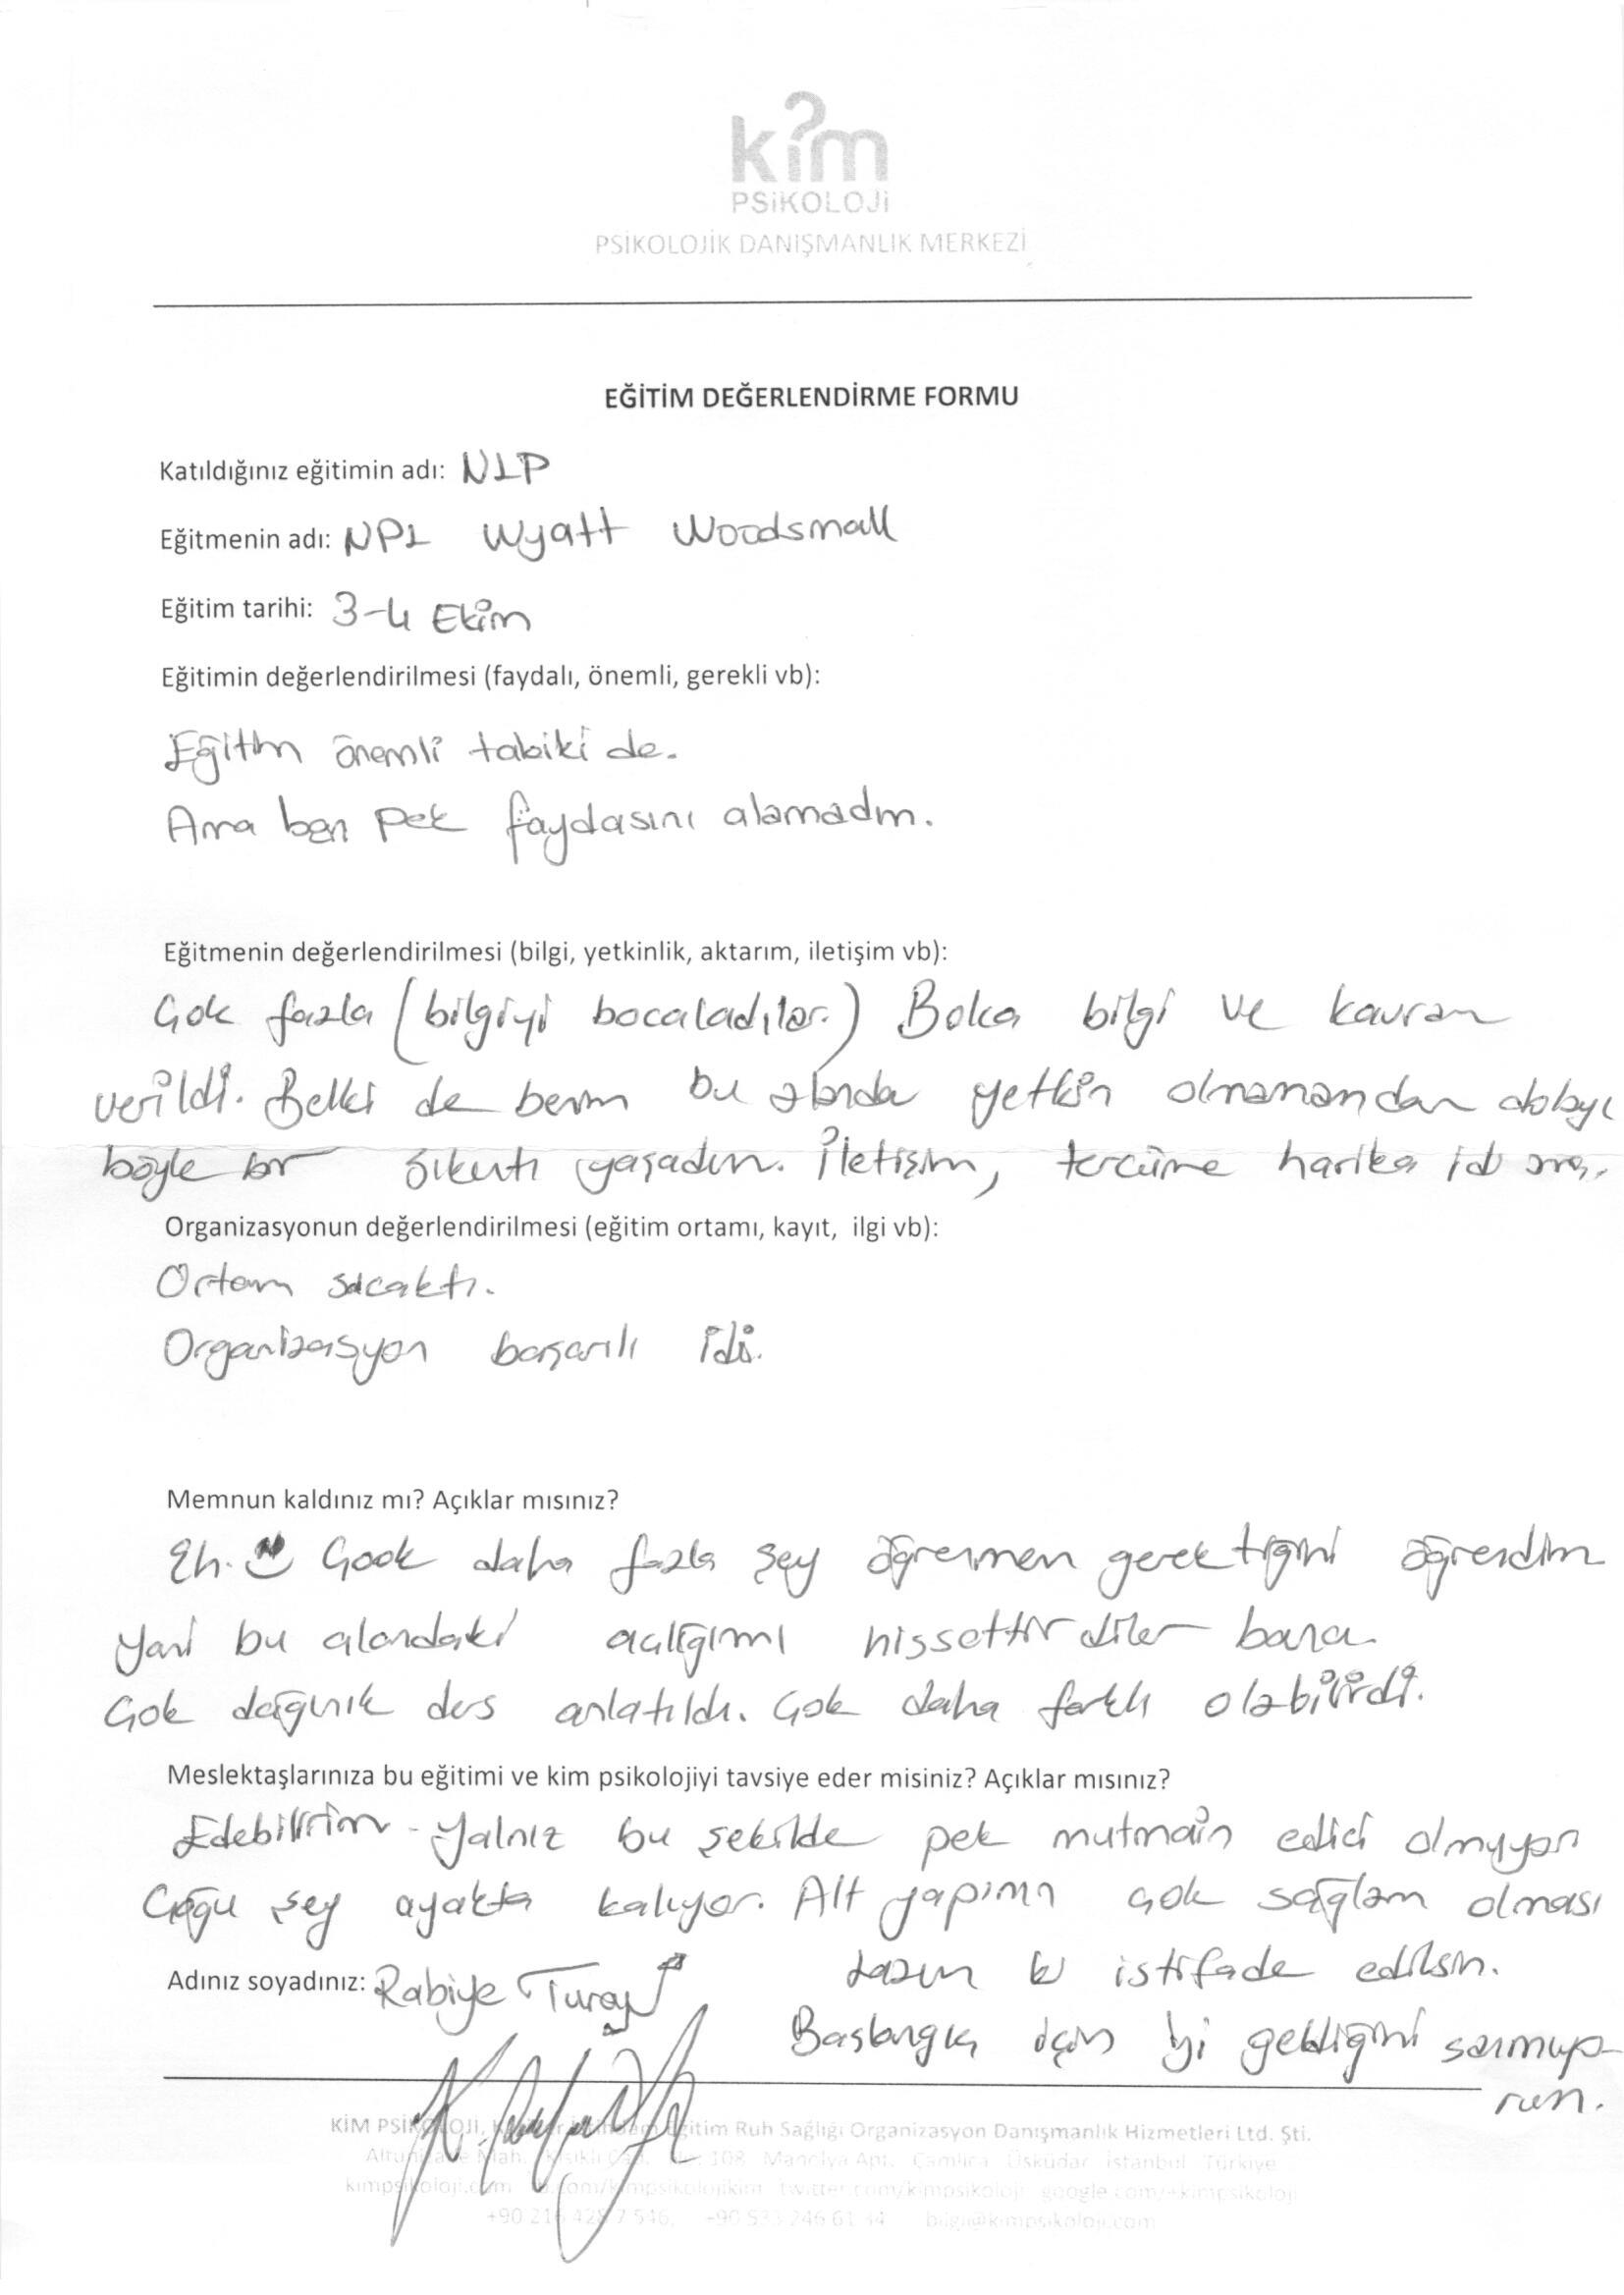 kim
PSİKOLOJİ
PSİKOLOJİK DANIŞMANLIK MERKEZİ
EĞİTİM DEĞERLENDİRME FORMU
Katıldığınız eğitimin adı: NLP
Eğitmenin adı: NPL Wyatt Woodsmall
Eğitim tarihi: 3-4 Ekim
Eğitimin değerlendirilmesi (faydalı, önemli, gerekli vb):
Eğitim önemli tabiki de.
Ama ben pek faydasını alamadım.
Eğitmenin değerlendirilmesi (bilgi, yetkinlik, aktarım, iletişim vb):
Çok fazla (bilgiyi bocaladılar.) Bolca bilgi ve kavram
verildi. Belki de benim bu alanda yetkin olmamamdan dolayı
böyle bir sıkıntı yaşadım. İletişim, tercüme harika idi ama.
Organizasyonun değerlendirilmesi (eğitim ortamı, kayıt, ilgi vb):
Ortam sıcaktı.
Organizasyon başarılı idi.
Memnun kaldınız mı? Açıklar mısınız?
Eh. Çook daha fazla şey öğrenmem gerektiğini öğrendim
Yani bu alandaki açlığımı hissettirdiler bana.
Çok dağınık ders anlatıldı. Çok daha farklı olabilirdi.
Meslektaşlarınıza bu eğitimi ve kim psikolojiyi tavsiye eder misiniz? Açıklar mısınız?
Edebilirim. Yalnız bu şekilde pek mutmain edici olmuyor
Çoğu şey ayakta kalıyor. Alt yapının çok sağlam olması
lazım ki istifade edilsin.
Adınız soyadınız: Rabiye Turay
Başlangıç için iyi geldiğini sanmıyo-
rum.
KİM PSİKOLOJİ, Eğitim Ruh Sağlığı Organizasyon Danışmanlık Hizmetleri Ltd. Şti.
Mah. 108 Manolya Apt. Çamlıca Üsküdar İstanbul Türkiye
kimpsikoloji.com twitter.com/kimpsikoloji google.com/+kimpsikoloji
bilgi@kimpsikoloji.com